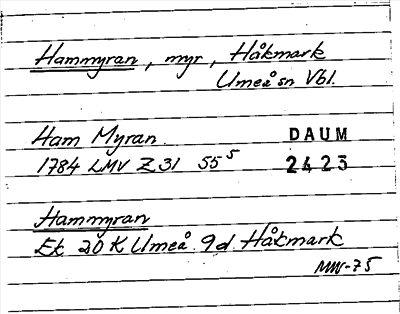 Hammyran, myr, Håkmark
Umeå sn Vbl.
Ham Myran
DAUM
1784 LMV Z 31 55⁵
2423
Hammyran
Ek 20 K Umeå 9d Håkmark
MW-75